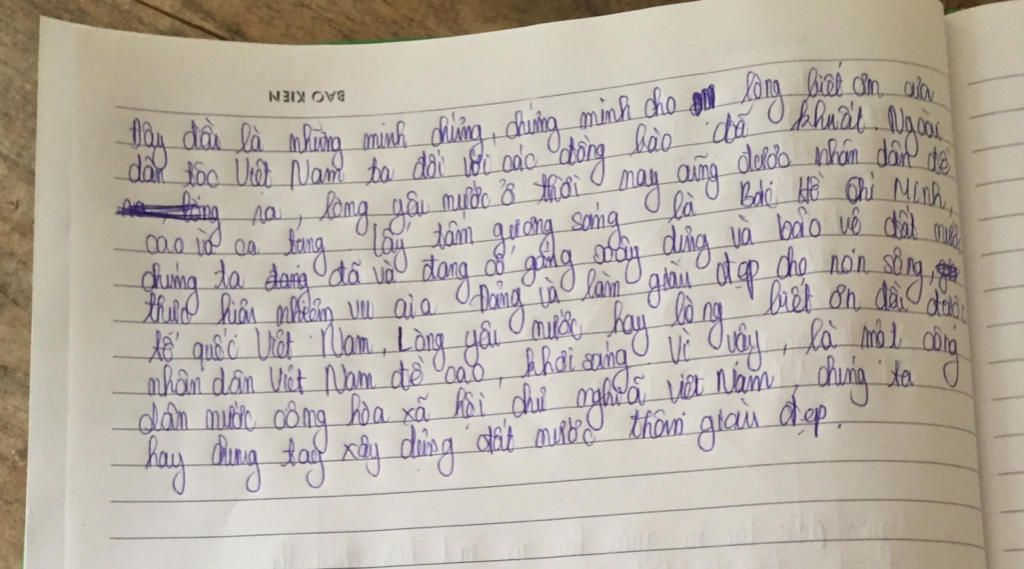 BAO KIEN
Đây đều là những minh chứng, chứng minh cho lòng biết ơn của
dân tộc Việt Nam ta đối với các đồng bào đã khuất. Ngoài
ra, lòng yêu nước ở thời nay cũng được nhân dân đề
cao và ca tụng lấy tấm gương sáng là Bác Hồ Chí Minh,
chúng ta đang đã và đang cố gắng xây dựng và bảo vệ đất nước
thực hiện nhiệm vụ của Đảng và làm giàu đẹp cho non sông,
tổ quốc Việt Nam. Lòng yêu nước hay lòng biết ơn đều được
nhân dân Việt Nam đề cao, khơi sáng Vì vậy, là một công
dân nước cộng hòa xã hội chủ nghĩa Việt Nam, chúng ta
hãy chung tay xây dựng đất nước thêm giàu đẹp.